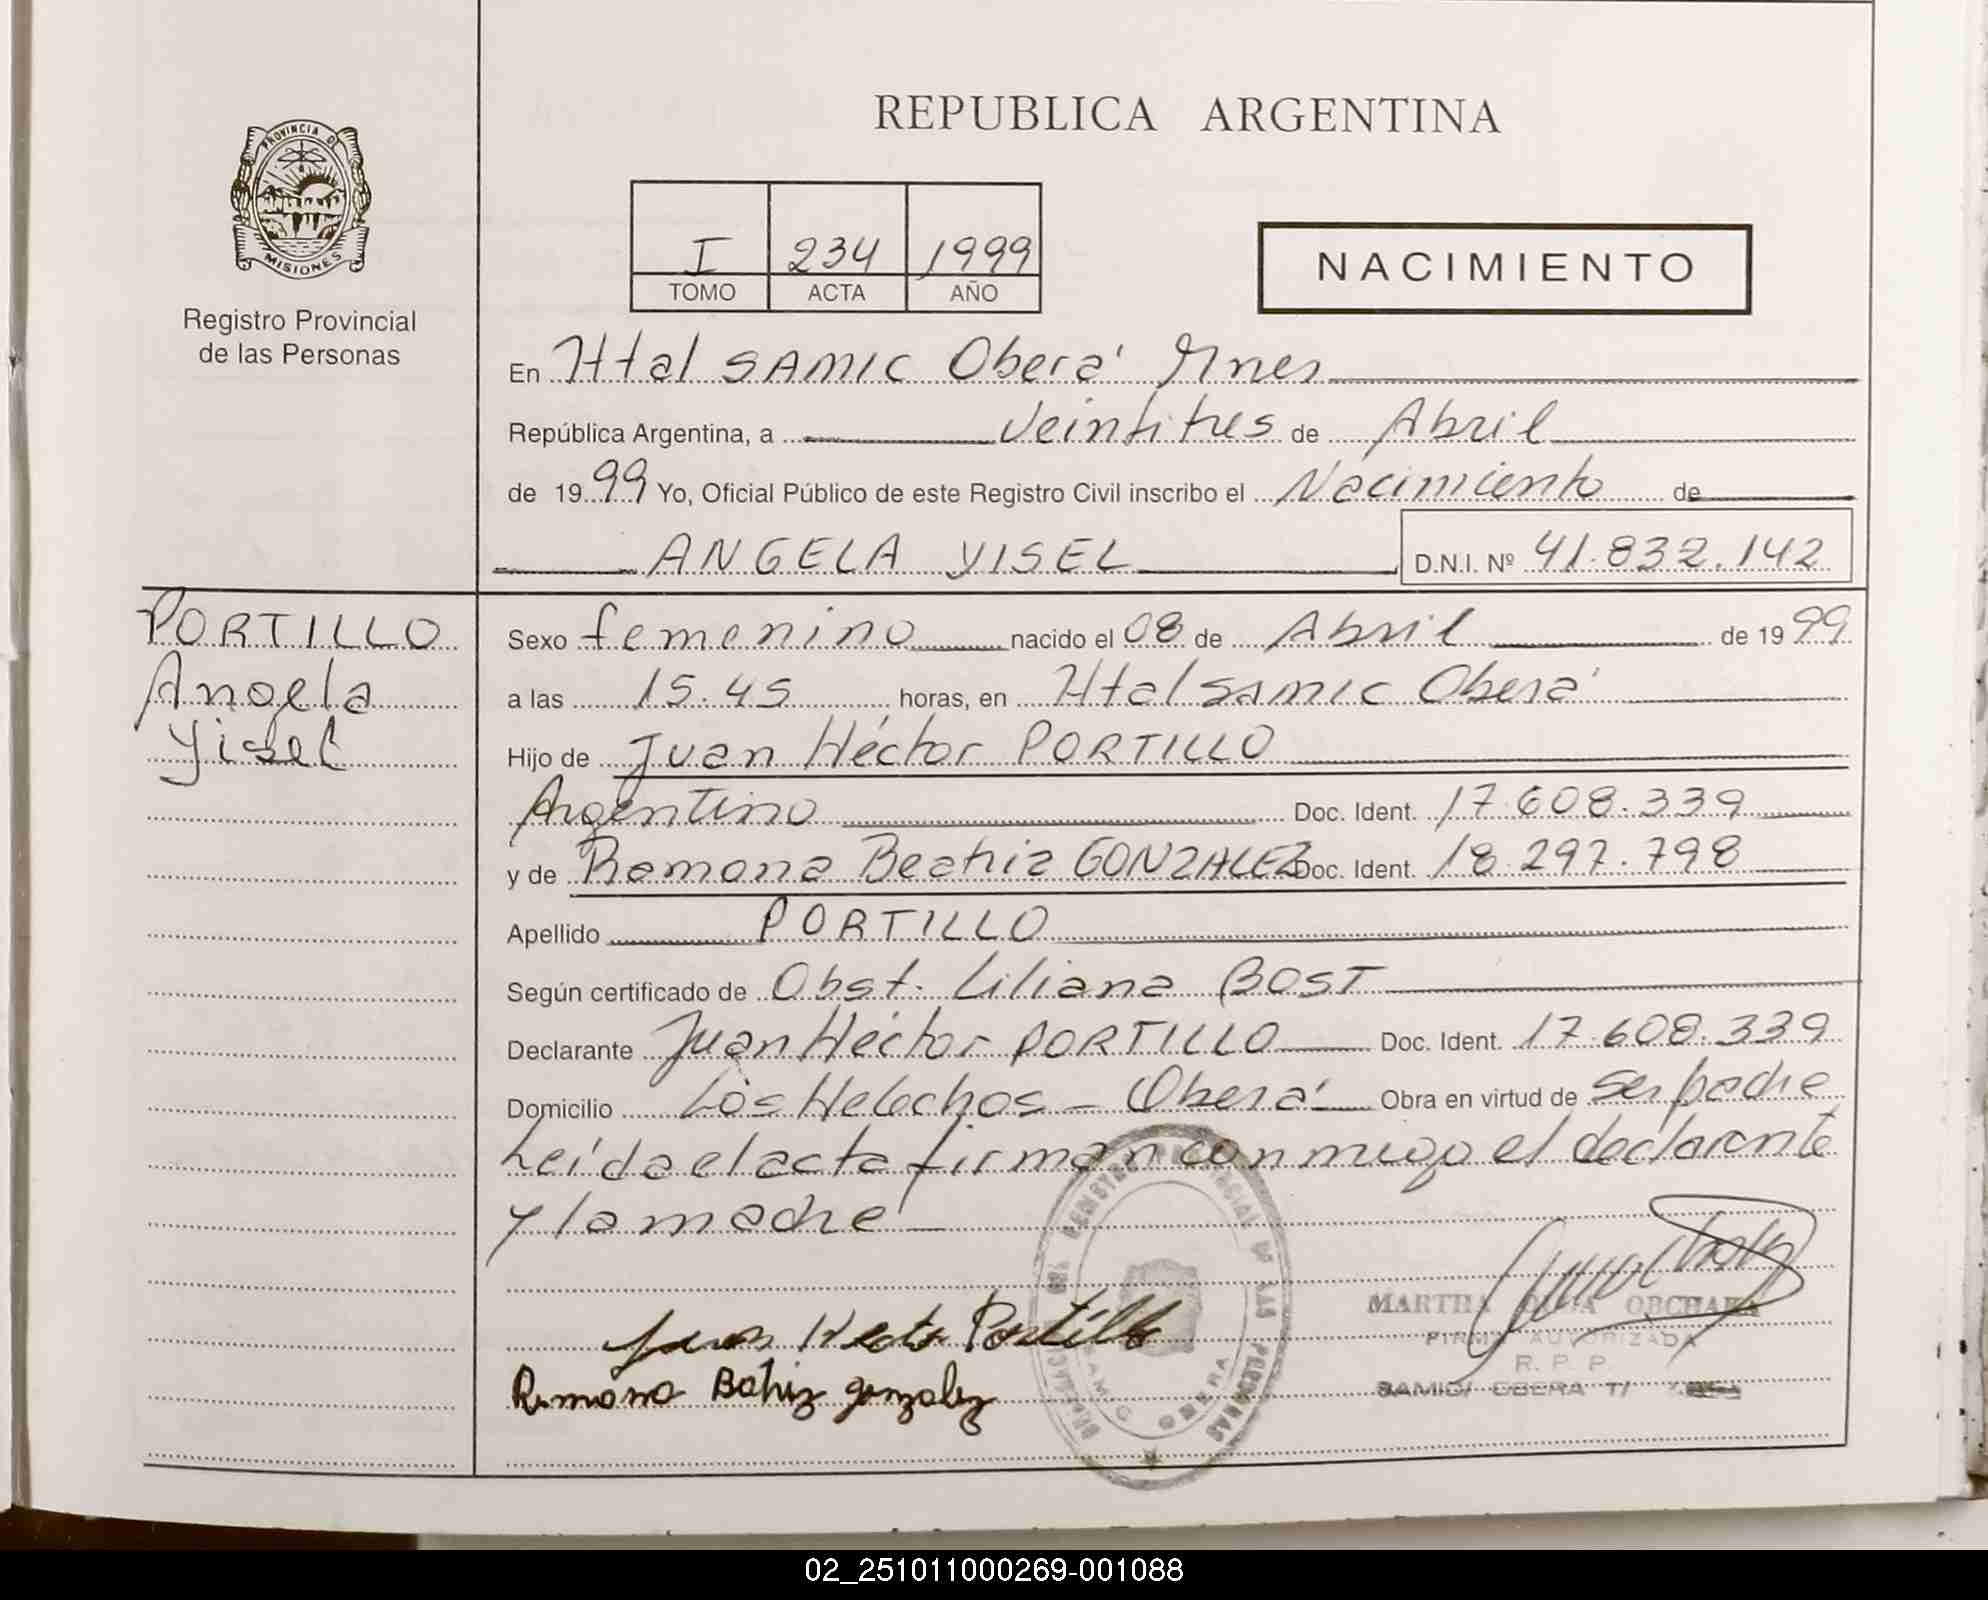 REPUBLICA ARGENTINA
PROVINCIA DE
MISIONES
Registro Provincial
de las Personas
I 234 1999
TOMO ACTA AÑO
NACIMIENTO
En Htal SAMIC Oberá Mnes
República Argentina, a Veintitres de Abril
de 1999 Yo, Oficial Público de este Registro Civil inscribo el Nacimiento de
ANGELA YISEL D.N.I. Nº 41.832.142
PORTILLO
Angela
Yisel
Sexo femenino nacido el 08 de Abril de 1999
a las 15.45 horas, en Htal SAMIC Oberá
Hijo de Juan Héctor PORTILLO
Argentino Doc. Ident. 17.608.339
y de Ramona Beatriz GONZALEZ Doc. Ident. 18.297.798
Apellido PORTILLO
Según certificado de Obst. Liliana BOST
Declarante Juan Héctor PORTILLO Doc. Ident. 17.608.339
Domicilio Los Helechos - Oberá Obra en virtud de ser padre
Leída el acta firman conmigo el declarante
y la madre
Juan Hector Portillo
Ramona Batriz gonzalez
MARTHA OLGA
FIRMA AUTORIZADA
R. P. P.
SAMIC/ OBERA T/
02_251011000269-001088